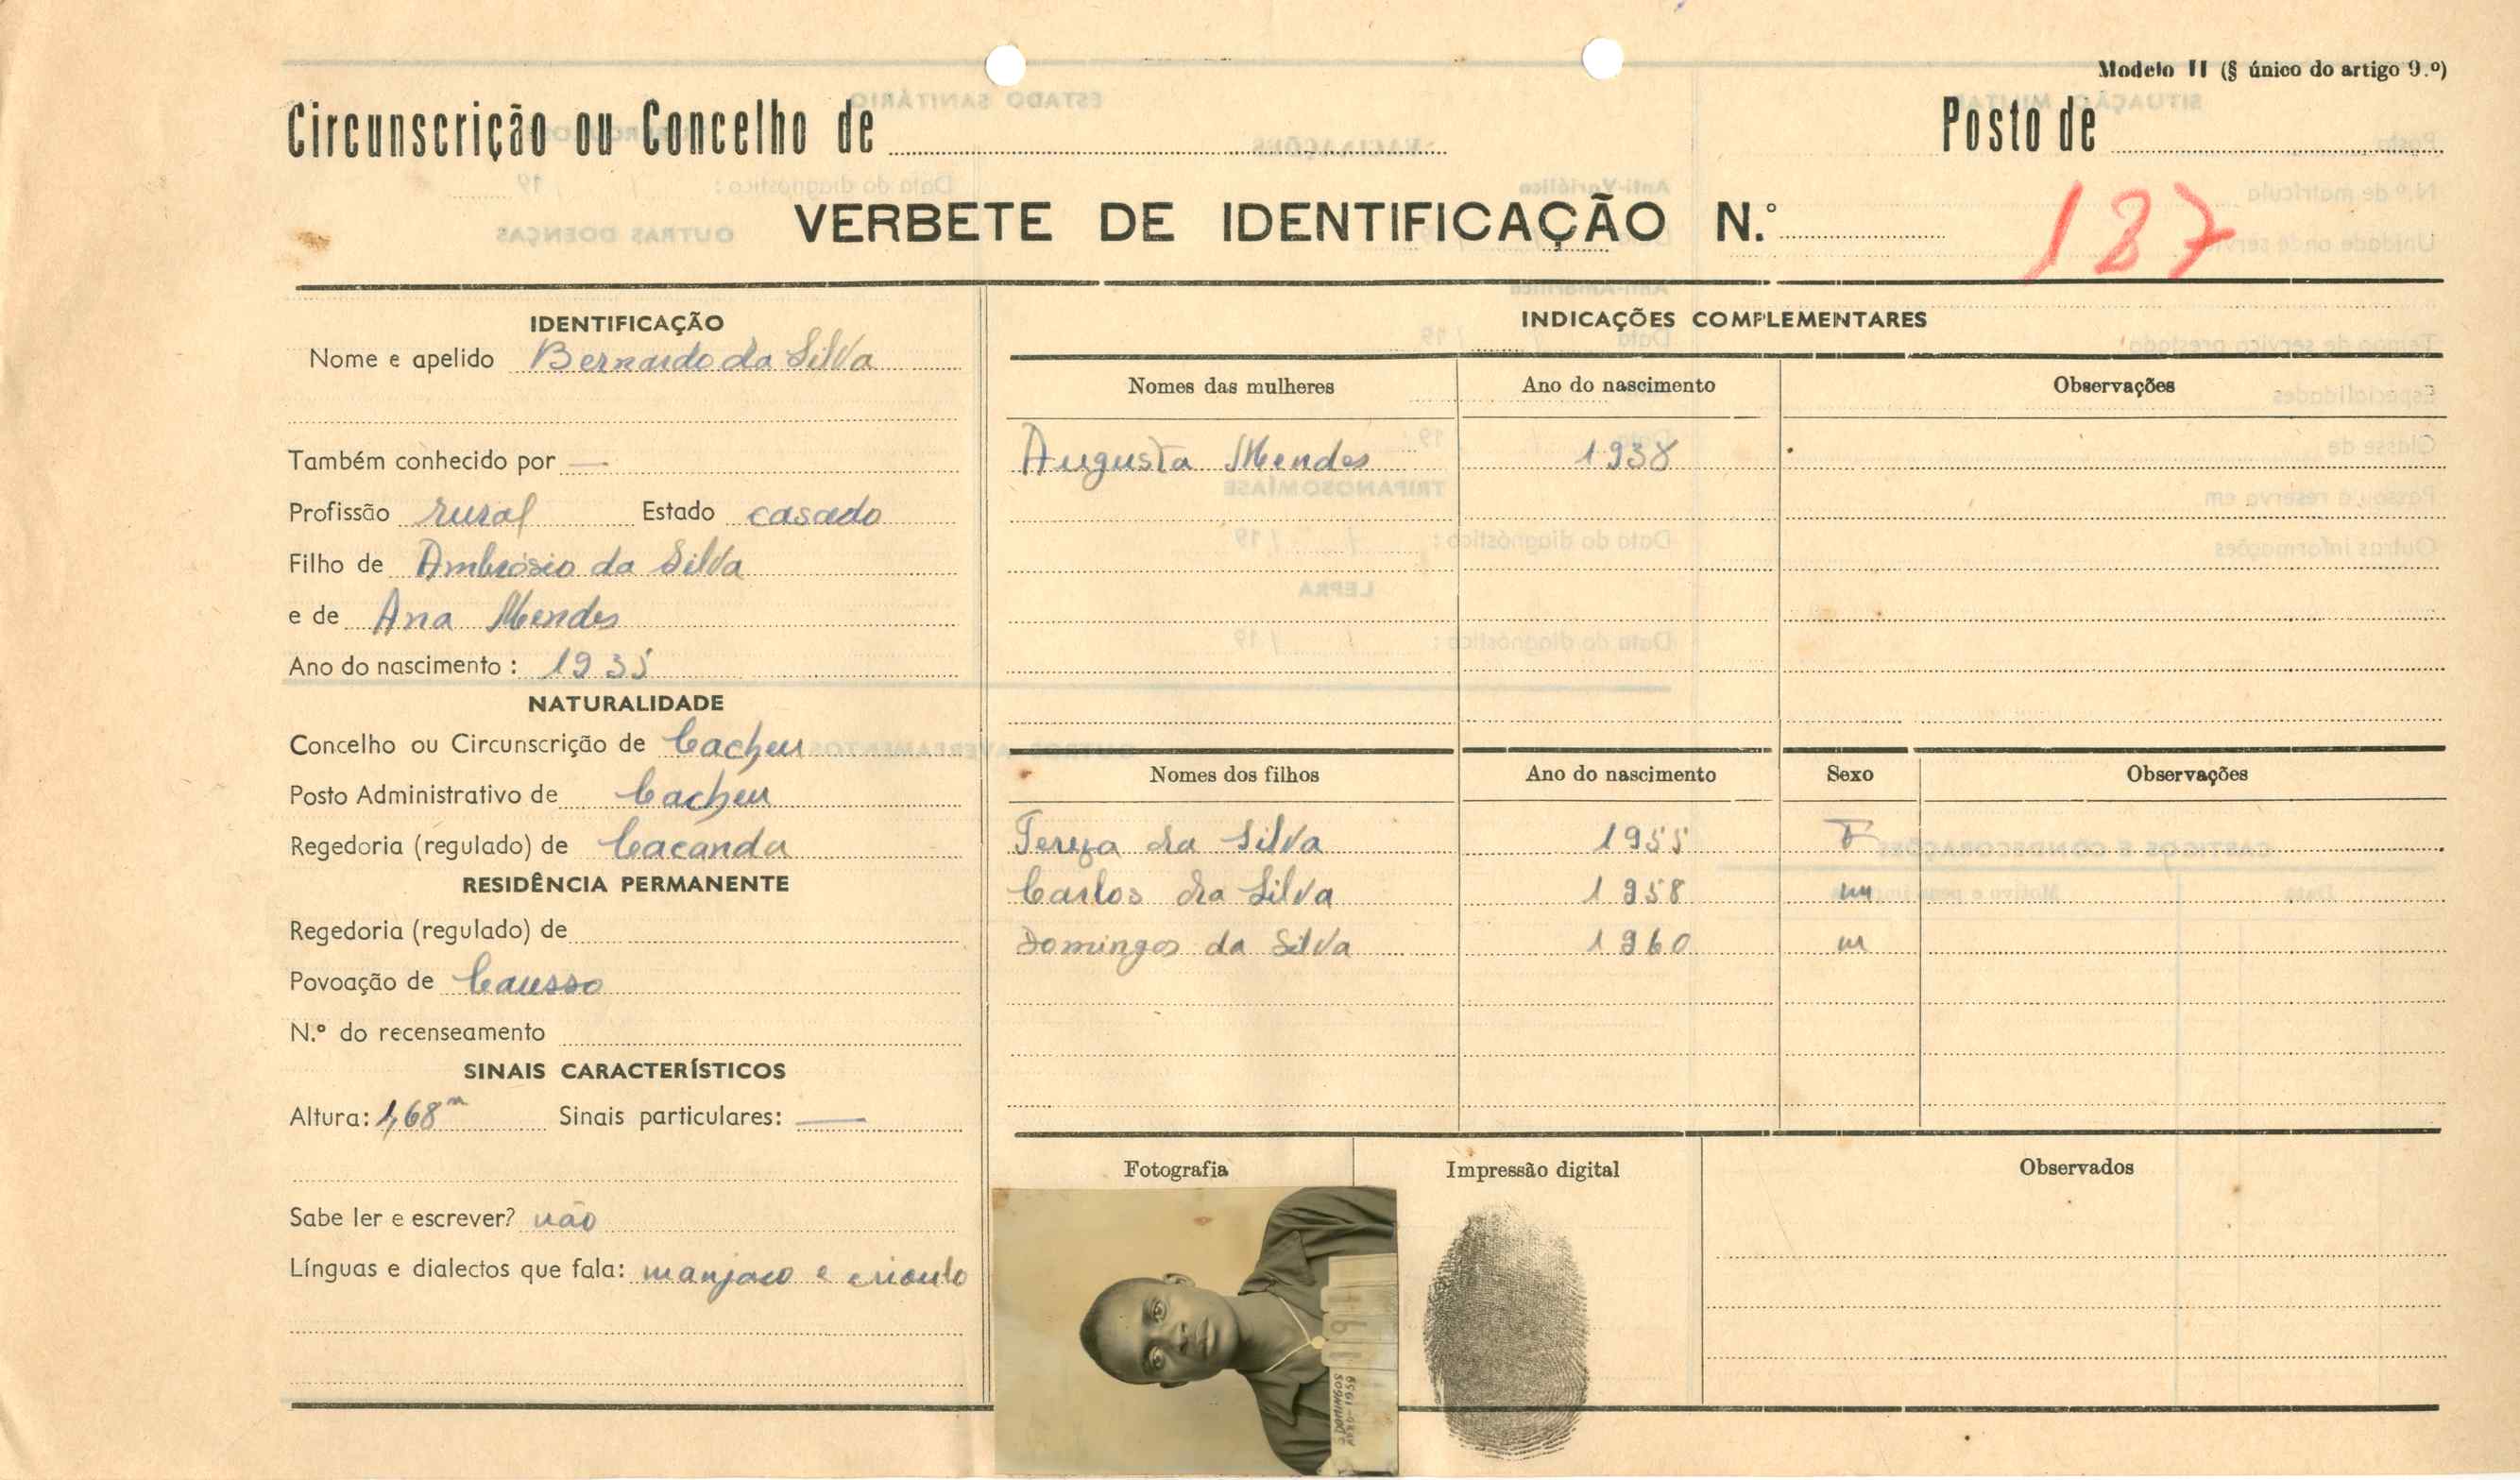 Modelo II (§ único do artigo 9.º)
Circunscrição ou Concelho de
Posto de
VERBETE DE IDENTIFICAÇÃO N.º
187
IDENTIFICAÇÃO
Nome e apelido Bernardo da Silva
Também conhecido por —
Profissão rural Estado casado
Filho de Ambrósio da Silva
e de Ana Mendes
Ano do nascimento : 1935
NATURALIDADE
Concelho ou Circunscrição de Cacheu
Posto Administrativo de Cacheu
Regedoria (regulado) de Cacanda
RESIDÊNCIA PERMANENTE
Regedoria (regulado) de
Povoação de Causso
N.º do recenseamento
SINAIS CARACTERÍSTICOS
Altura: 1,68m Sinais particulares: —
Sabe ler e escrever? não
Línguas e dialectos que fala: manjaco e crioulo
INDICAÇÕES COMPLEMENTARES
Nomes das mulheres Ano do nascimento Observações
Augusta Mendes 1938
Nomes dos filhos Ano do nascimento Sexo Observações
Tereza da Silva 1955 F
Carlos da Silva 1958 m
Domingos da Silva 1960 m
Fotografia Impressão digital Observados
DOMINGOS